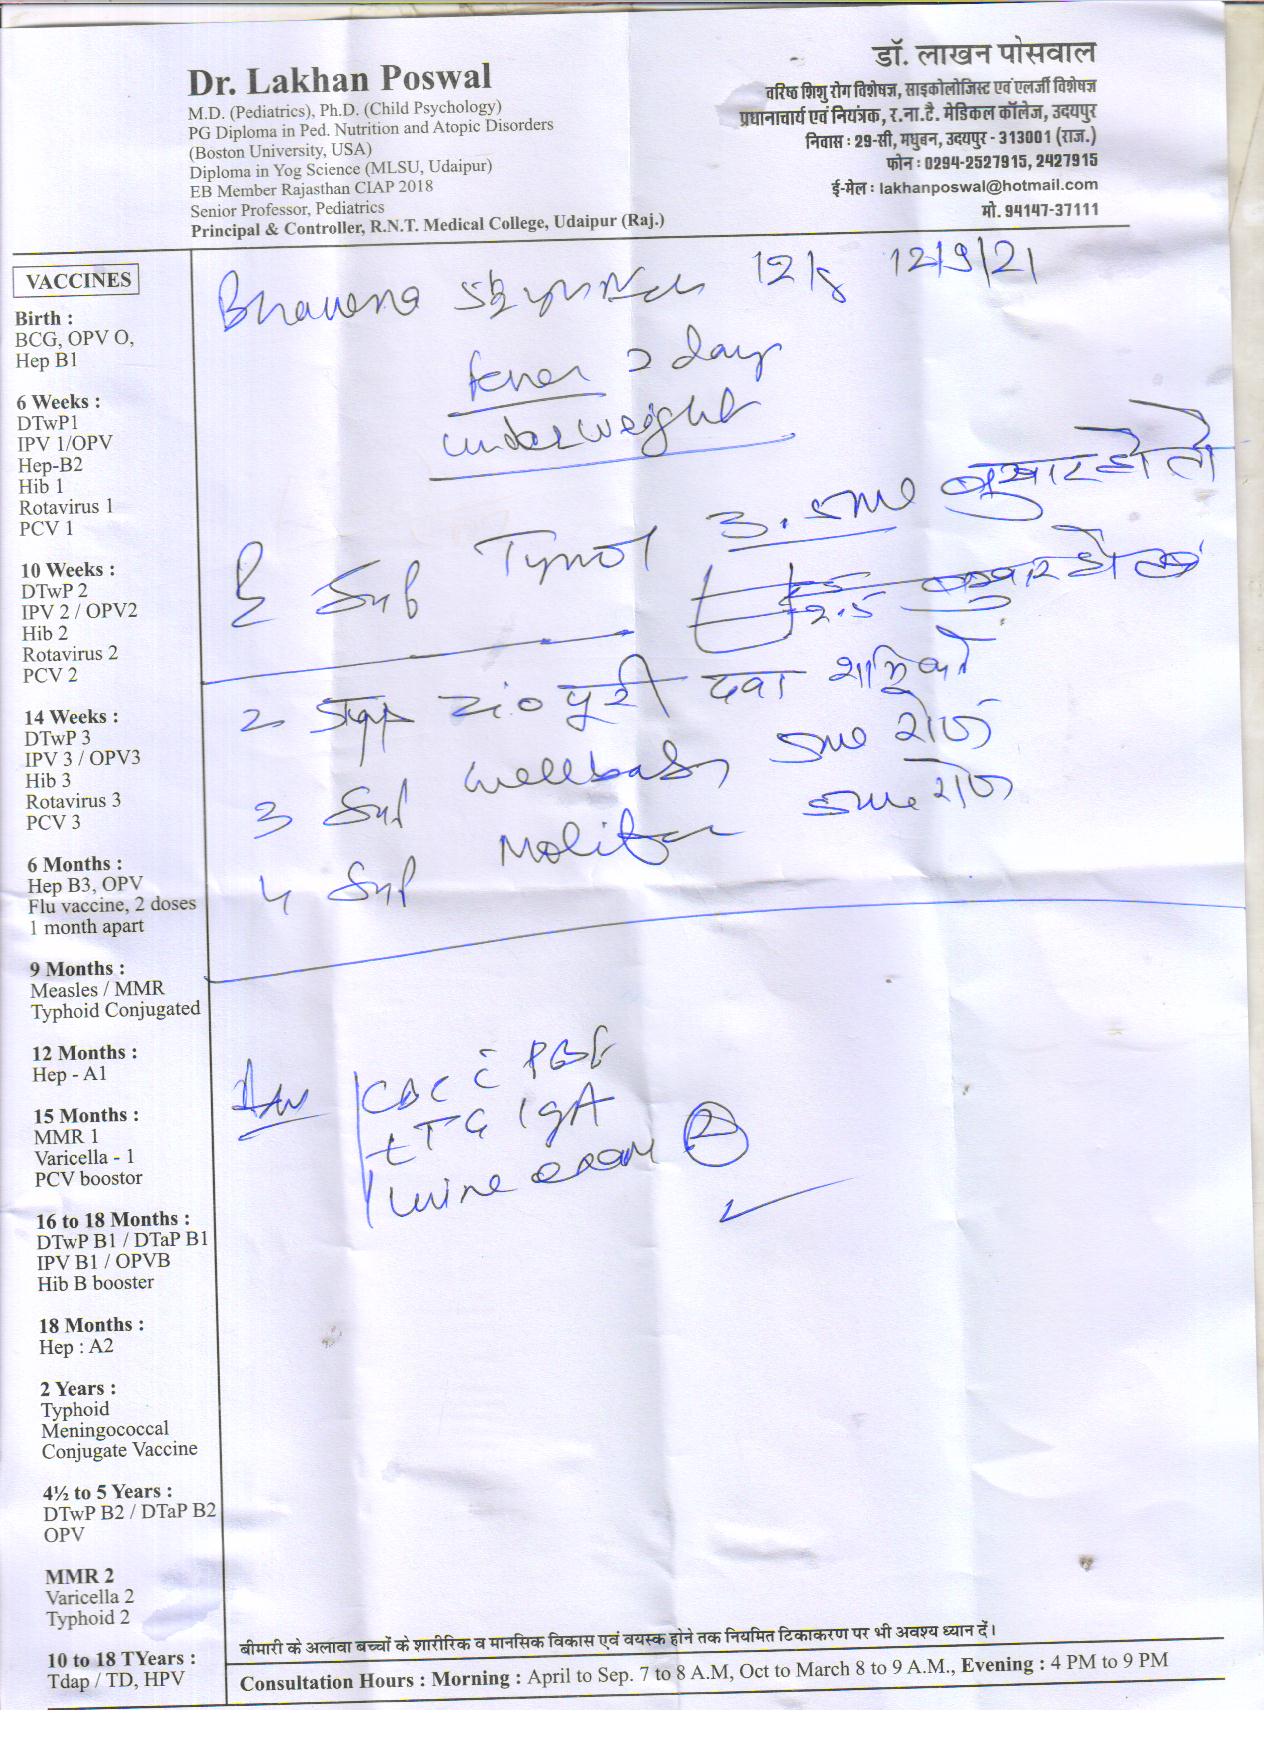 Dr. Lakhan Poswal
M.D. (Pediatrics), Ph.D. (Child Psychology)
PG Diploma in Ped. Nutrition and Atopic Disorders
(Boston University, USA)
Diploma in Yog Science (MLSU, Udaipur)
EB Member Rajasthan CIAP 2018
Senior Professor, Pediatrics
Principal & Controller, R.N.T. Medical College, Udaipur (Raj.)
डॉ. लाखन पोसवाल
वरिष्ठ शिशु रोग विशेषज्ञ, साइकोलोजिस्ट एवं एलर्जी विशेषज्ञ
प्रधानाचार्य एवं नियंत्रक, र.ना.टै. मेडिकल कॉलेज, उदयपुर
निवास : 29-सी, मधुबन, उदयपुर - 313001 (राज.)
फोन : 0294-2527915, 2427915
ई-मेल : lakhanposwal@hotmail.com
मो. 94147-37111
VACCINES
Birth :
BCG, OPV O,
Hep B1
6 Weeks :
DTwP1
IPV 1/OPV
Hep-B2
Hib 1
Rotavirus 1
PCV 1
10 Weeks :
DTwP 2
IPV 2 / OPV2
Hib 2
Rotavirus 2
PCV 2
14 Weeks :
DTwP 3
IPV 3 / OPV3
Hib 3
Rotavirus 3
PCV 3
6 Months :
Hep B3, OPV
Flu vaccine, 2 doses
1 month apart
9 Months :
Measles / MMR
Typhoid Conjugated
12 Months :
Hep - A1
15 Months :
MMR 1
Varicella - 1
PCV boostor
16 to 18 Months :
DTwP B1 / DTaP B1
IPV B1 / OPVB
Hib B booster
18 Months :
Hep : A2
2 Years :
Typhoid
Meningococcal
Conjugate Vaccine
4½ to 5 Years :
DTwP B2 / DTaP B2
OPV
MMR 2
Varicella 2
Typhoid 2
10 to 18 TYears :
Tdap / TD, HPV
Bhavena 12/9/21
fever 2 day
underweight
Syp Tynol बुखार हो तो
2.5
2 दवा
3 Syp 5ml रोज
4 Syp 5ml रोज
Inv
CBC c PBF
tTG IgA
Urine exam
बीमारी के अलावा बच्चों के शारीरिक व मानसिक विकास एवं वयस्क होने तक नियमित टिकाकरण पर भी अवश्य ध्यान दें।
Consultation Hours : Morning : April to Sep. 7 to 8 A.M, Oct to March 8 to 9 A.M., Evening : 4 PM to 9 PM